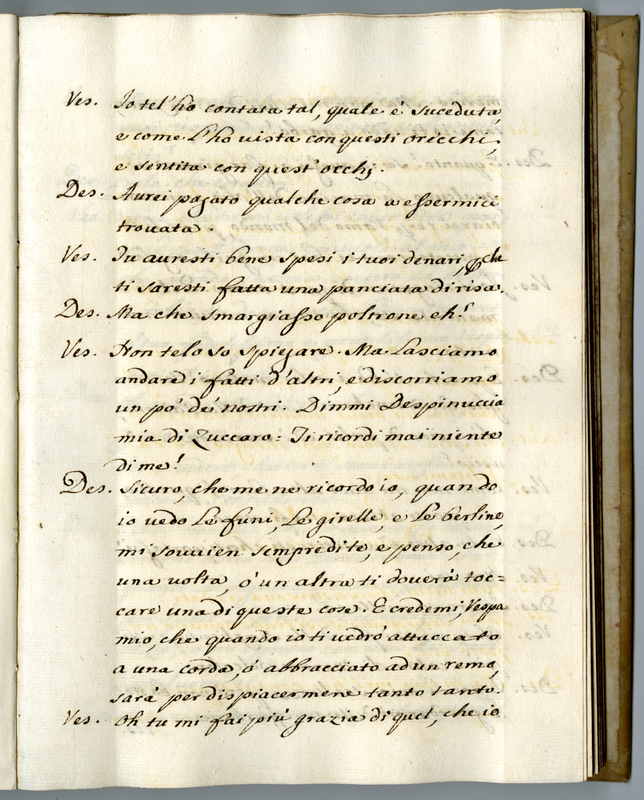 Ves. Io tel'ho contata tal, quale è suceduta,
e come l'ho vista con questi orecchi,
e sentita con quest'occhj.
Des. Aurei pagato qualche cosa a essermici
trovata.
Ves. Tu auresti bene spesi i tuoi denari, pche
ti saresti fatta una panciata di risa.
Des. Ma che smargiasso poltrone eh?
Ves. Non telo so spiegare. Ma lasciamo
andare i fatti d'altri, e discorriamo
un pò de' nostri. Dimmi Despinuccia
mia di Zuccaro: Ti ricordi mai niente
di me?
Des. Sicuro, che me ne ricordo io, quando
io vedo le funi, le girelle, e le berline,
mi souvien sempre di te, e penso, che
una volta, ò un altra ti doverà toc=
care una di queste cose. E credemi, Vespa
mio, che quando io ti vedrò attaccato
a una corda, ò abbracciato ad un remo,
sarà per dispiacermene tanto tanto.
Ves. Oh tu mi fai più grazia di quel, che io